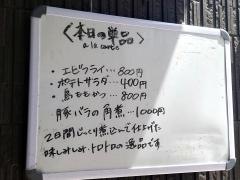 〈本日の単品〉
a la carte
・エビフライ…800円
・ポテトサラダ…400円
・鳥ももかつ…800円
・豚バラの角煮…1000円
2日間じっくり煮込んで仕上げた
味しみしみ、トロトロの逸品です